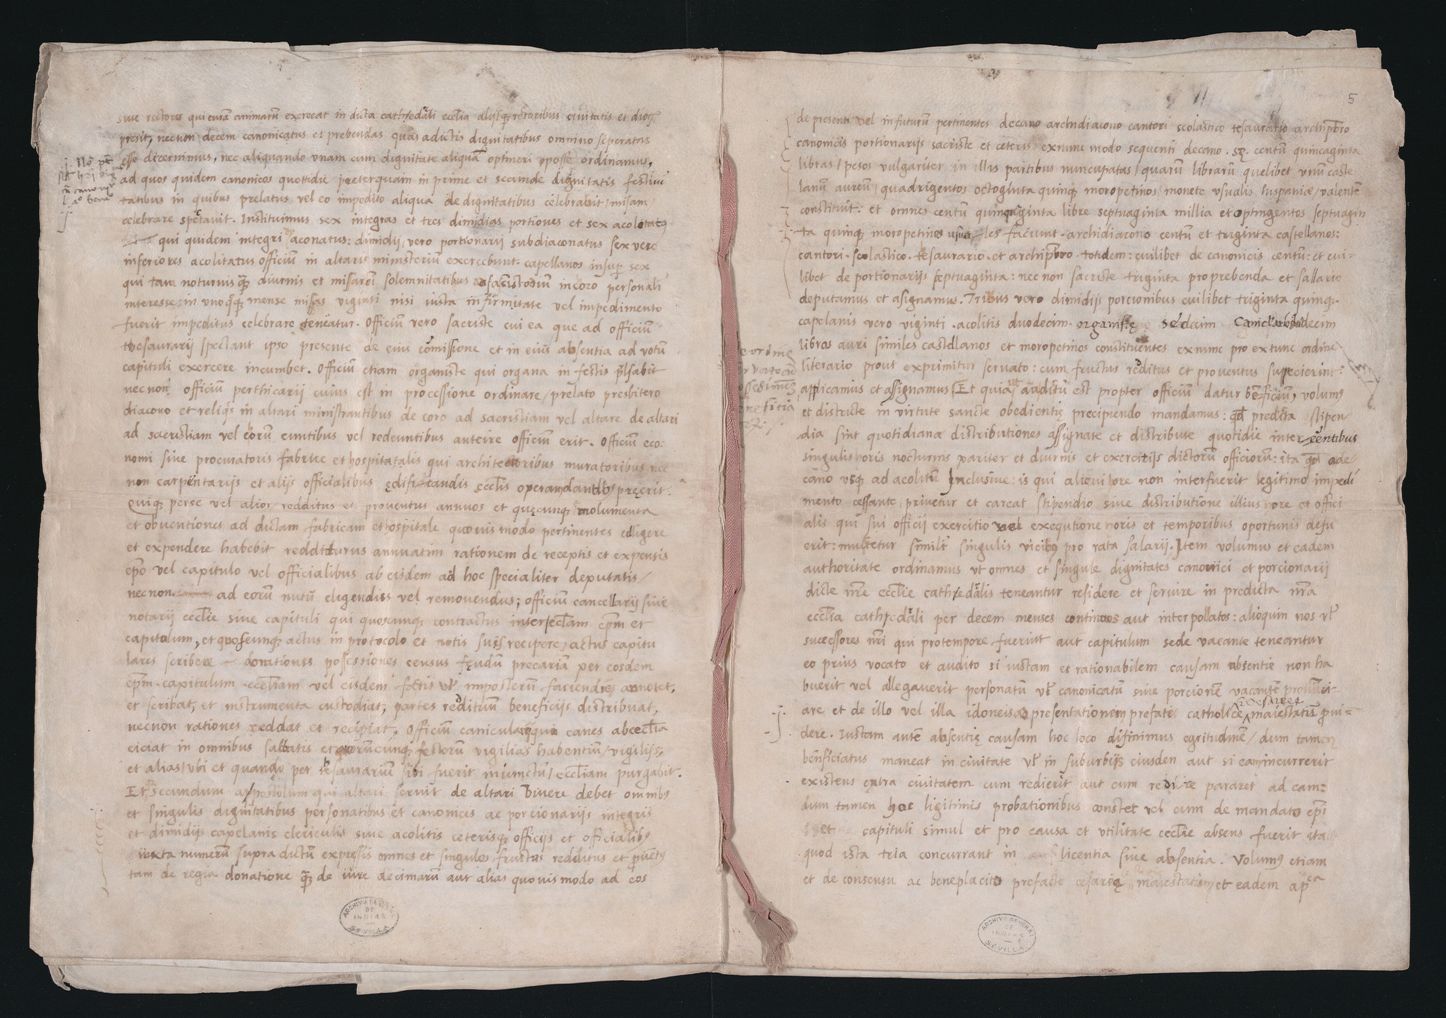 sive rectores qui curam animarũ exerceat in dicta cathedali ecclia aliisq rectoribus civitatis et dioc
presit, necnon decem canonicatus et prebendas quas a dictis dignitatibus omnino separatas
esse decernimus, nec aliquando vnam cum dignitate aliqua optineri posse ordinamus,
ad quos quidem canonicos quottidie preterquam in prime et secunde dignitatis festiui
tatibus in quibus prelatus vel eo impedito aliqua de dignitatibus celebrabit misam
celebrare spectauit. Instituimus sex integras et tres dimidias portiones et sex acolitatos
qui quidem integri diaconatus: dimidij vero portionarij subdiaconatus sex vero
inferiores acolitatus officiũ in altaris ministeriũ exercebunt. capellanos insup sex
qui tam nocturnus q diurnis et misarũ solemnitatibus in coro personali
interesse: in vnoqoq mense misas viginti nisi iusta infirmitate vel impedimento
fuerit impeditus celebrare teneatur. Officiũ vero sacriste cui ea que ad officiũ
thesaurarij spectant ipso presente de eius cõmissione et in eius absentia ad votũ
capituli exercere incumbet. Officiũ etiam organiste qui organa in festis psabit
necnon officiũ perthicarij cuius est in processione ordinare, prelato presbitero
diacono et reliqs in altari ministrantibus de coro ad sacristiam vel altare de altari
ad sacristiam vel corũ euntibus vel redeuntibus anteire officiũ erit. Officiũ eco:
nomi siue procuratoris fabrice et hospitalis qui architectoribus muratoribus nec
non carpentarijs et alijs officialibus edificandis ecclis operam dantib preerit.
quiq per se vel alios redditus et prouentus annuos et quecunq emolumenta
et obuentiones ad dictam fabricam et hospitale quouis modo pertinentes colligere
et expendere habebit redditurus annuatim rationem de receptis et expensis
epo vel capitulo vel officialibus ab eisdem ad hoc specialiter deputatis
necnon ad eorũ nutũ eligendus vel remouendus; officiũ cancellarij siue
notarij ecclie siue capituli qui quoscunq contractus inter ecclam epm et
capitulum, et quoscunq actus in protocolo et notis suis recipere, actus capitu
lares scribere donationes possessiones census feudũ precaria per eosdem
epm capitulum ecclliam vel eisdem factis vel imposterũ faciendis annotet,
et scribat, et instrumenta custodiat, partes redituũ beneficijs distribuat,
necnon rationes reddat et recipiat, Officiũ canicularij qui canes ab ecclia
eiciat in omnibus sabbatis et quorũcunq festorũ vigilias habentiũ, vigilijs,
et alias vbi et quando per thesaurariũ sibi fuerit iniunctũ, eccliam purgabit.
Et secundum apostolum qui altari seruit de altari viuere debet omnibs
et singulis dignitatibus personatibus et canonicis ac porcionarijs integris
et dimidijs capelanis clericulis siue acolitis ceterisq officijs et officialibs
iuxta numerũ supra dictũ expressis omnes et singulos fructus redditus et puets
tam de regia donatione q de iure decimarũ aut alias quouismodo ad eos
5
de presenti vel in futurũ pertinentes decano archidiacono cantori scolastico tesaurario archipbro
canonicis portionarijs sacriste et ceteris ex nunc modo sequenti decano. centũ quinquaginta
libras, pesos vulgariter in illis partibus nuncupatas, quarũ librarũ quelibet vnũ caste
lanũ aureũ, quadrigentos octoginta quinq morapetinos monete vsualis hispanie, valentẽ
constituit. et omnes centũ quinquaginta libre septuaginta millia et septingentos septuagin
ta quinq moropetinos les faciunt. archidiacono centũ et triginta castellanos:
cantori. scolastico. tesaurario. et archipbro totidem: cuilibet de canonicis centũ: et cui
libet de portionarijs septuaginta: nec non sacriste triginta pro prebenda et salario
deputamus et asignamus. Tribus vero dimidijs porcionibus cuilibet triginta quinq.
capelanis vero viginti. acolitis duodecim. organiste sedecim canicl duodecim
libras auri similes castellanos et moropetinos constituentes ex nunc pro ex tunc ordine
literario prout exprimitur seruato: cum fructus reditus et prouentus supecierint:
applicamus et assignamus. Et quia vt auditũ est propter officiũ datur bẽficiũ, volums
et districte in virtute sancte obedientie precipiendo mandamus: qd predicta stipen
dia sint quotidiana distributiones assignate et distribute quotidie interexentibus
singulis horis nocturnis pariter et diurnis et exercitijs dictorũ officiorũ: ita qd a de
cano vsq ad acolitũ inclusiue: is qui alicui hore non interfuerit legitimo impedi
mento cessante, priuetur et careat stipendio siue distributione illius hore et offici
alis qui sui officij exercitio vel exequtione horis et temporibus oportunis defu
erit: multetur simili singulis vicibq pro rata salarij. Item volumus et eadem
authoritate ordinamus vt omnes et singule dignitates canonici et porcionarij
dicte nre ecclie cathedalis teneantur residere et seruire in predicta nra
ecclia cathedali per decem menses continuos aut interpollatos: alioquin nos vl
successores nri qui pro tempore fuerint aut capitulum sede vacante teneantur
eo prius vocato et audito si iustam et rationabilem causam absentie non ha
buerit vel allegauerit personatũ vl canonicatũ siue porcionẽ vacantẽ pronũci
are et de illo vel illa idoneis ad presentationem prefate catholice maiestatis pui=
dere. Iustam autẽ absentie causam hoc loco difinimus egritudinẽ, dum tamen
benficiatus maneat in ciuitate vl in suburbijs eiusden aut si eam incurrerit
existens extra ciuitatem cum redierit aut cum redire pararet ad eam:
dum tamen hoc ligitimis probationibus constet vel cum de mandato epi
et capituli simul et pro causa et vtilitate ecclie absens fuerit ita
quod ista tria concurrant in licentia siue absentia. Volums etiam
et de consensu ac beneplacito prefacte cesaree maiestatis, et eadem ap
ARCHIVO GENERAL
DE
INDIAS
SEVILLA
ARCHIVO GENERAL
DE
INDIAS
SEVILLA